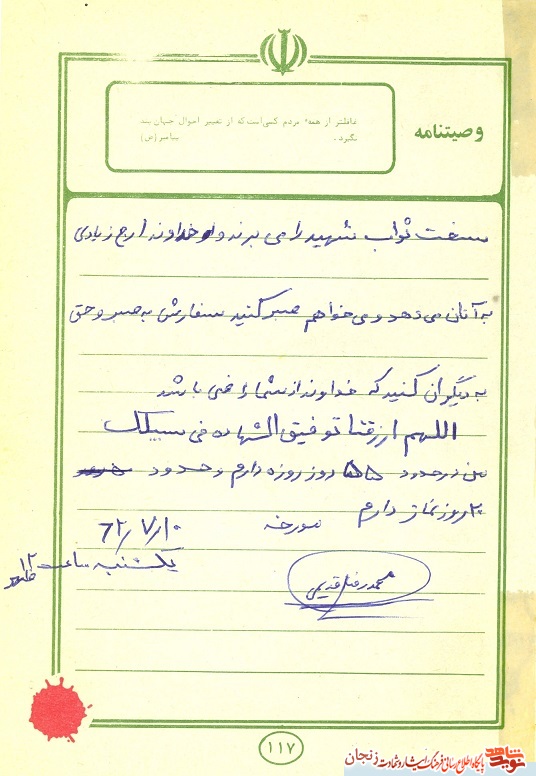 وصیتنامه
غافلتر از همهٔ مردم کسی‌است که از تغییر احوال جهان پند
نگیرد. پیامبر(ص)
سخت ثواب شهید را می برند و خداوند ارج زیادی
به آنان می دهد و می خواهم صبر کنید سفارش به صبر و حق
به دیگران کنید که خداوند از شما راضی باشد
اللهم ارزقنا توفیق الشهاده فی سبیلک
من در حدود ۵۵ روز روزه دارم و حدود
۲۰ روز نماز دارم
مورخه ۶۲/۷/۱۰
یکشنبه ساعت ۱۲ ظهر
محمدرضا قدیمی
۱۱۷
نوید شاهد
پایگاه اطلاع رسانی فرهنگ ایثار و شهادت زنجان